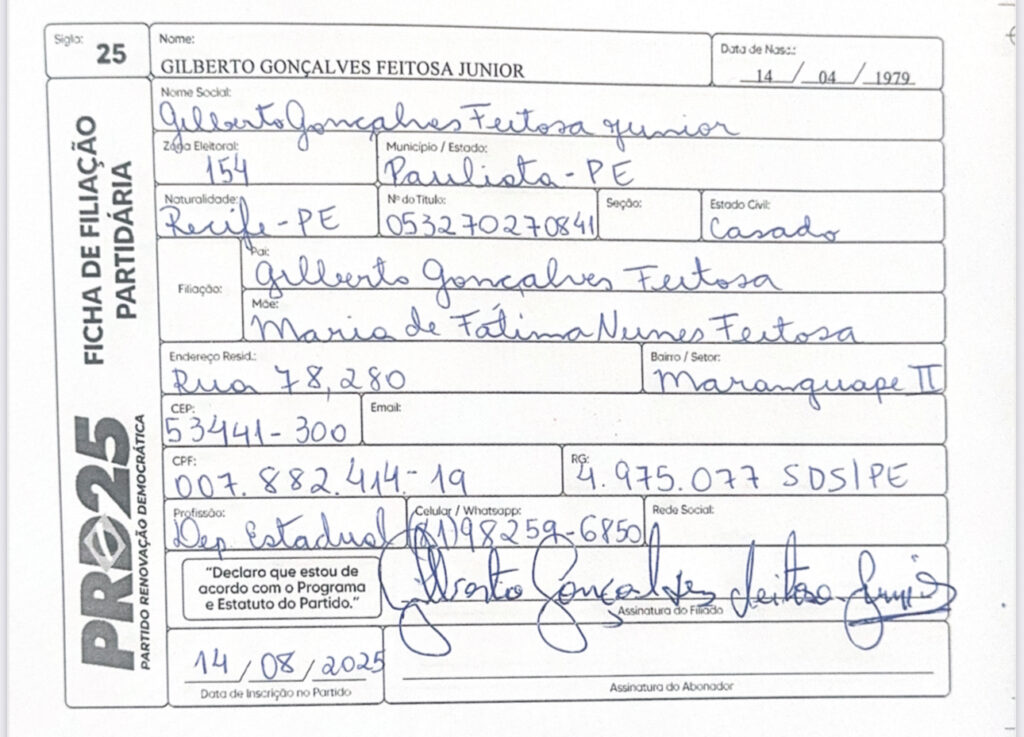 Sigla: 25
Nome:
GILBERTO GONÇALVES FEITOSA JUNIOR
Data de Nasc.:
14 / 04 / 1979
Nome Social:
Gilberto Gonçalves Feitosa Junior
Zona Eleitoral:
154
Município / Estado:
Paulista - PE
Naturalidade:
Recife-PE
Nº do Título:
053270270841
Seção:
Estado Civil:
Casado
Filiação:
Pai:
Gilberto Gonçalves Feitosa
Mãe:
Maria de Fátima Nunes Feitosa
Endereço Resid.:
Rua 78, 280
Bairro / Setor:
Maranguape II
CEP:
53441-300
Email:
CPF:
007.882.414-19
RG:
4.975.077 SDS/PE
Profissão:
Dep Estadual
Celular / Whatsapp:
(81)98259-6850
Rede Social:
"Declaro que estou de
acordo com o Programa
e Estatuto do Partido."
Gilberto Gonçalves Feitosa Junior
Assinatura do Filiado
14 / 08 / 2025
Data de Inscrição no Partido
Assinatura do Abonador
FICHA DE FILIAÇÃO
PARTIDÁRIA
PRD25
PARTIDO RENOVAÇÃO DEMOCRÁTICA